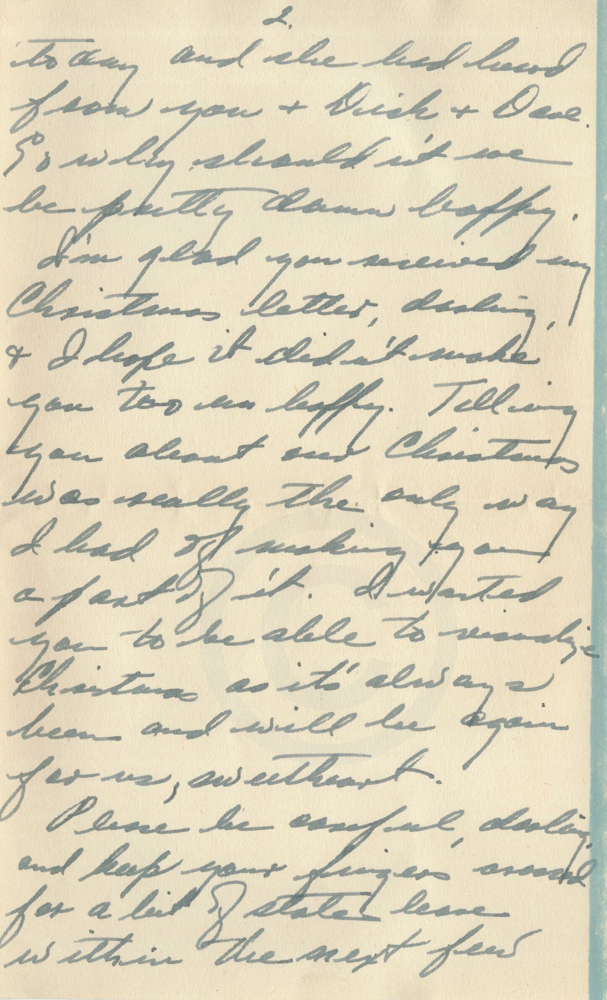 2.
today and she had heard
from you + Dick + Dave.
So why shouldn't we
be pretty damn happy.
I'm glad you received my
Christmas letter, darling,
+ I hope it didn't make
you too un happy. Telling
you about our Christmas
was really the only way
I had of making you
a part of it. I wanted
you to be able to visualize
Christmas as it's always
been and will be again
for us, sweetheart.
Please be careful, darling,
and keep your fingers crossed
for a bit of states leave
within the next few